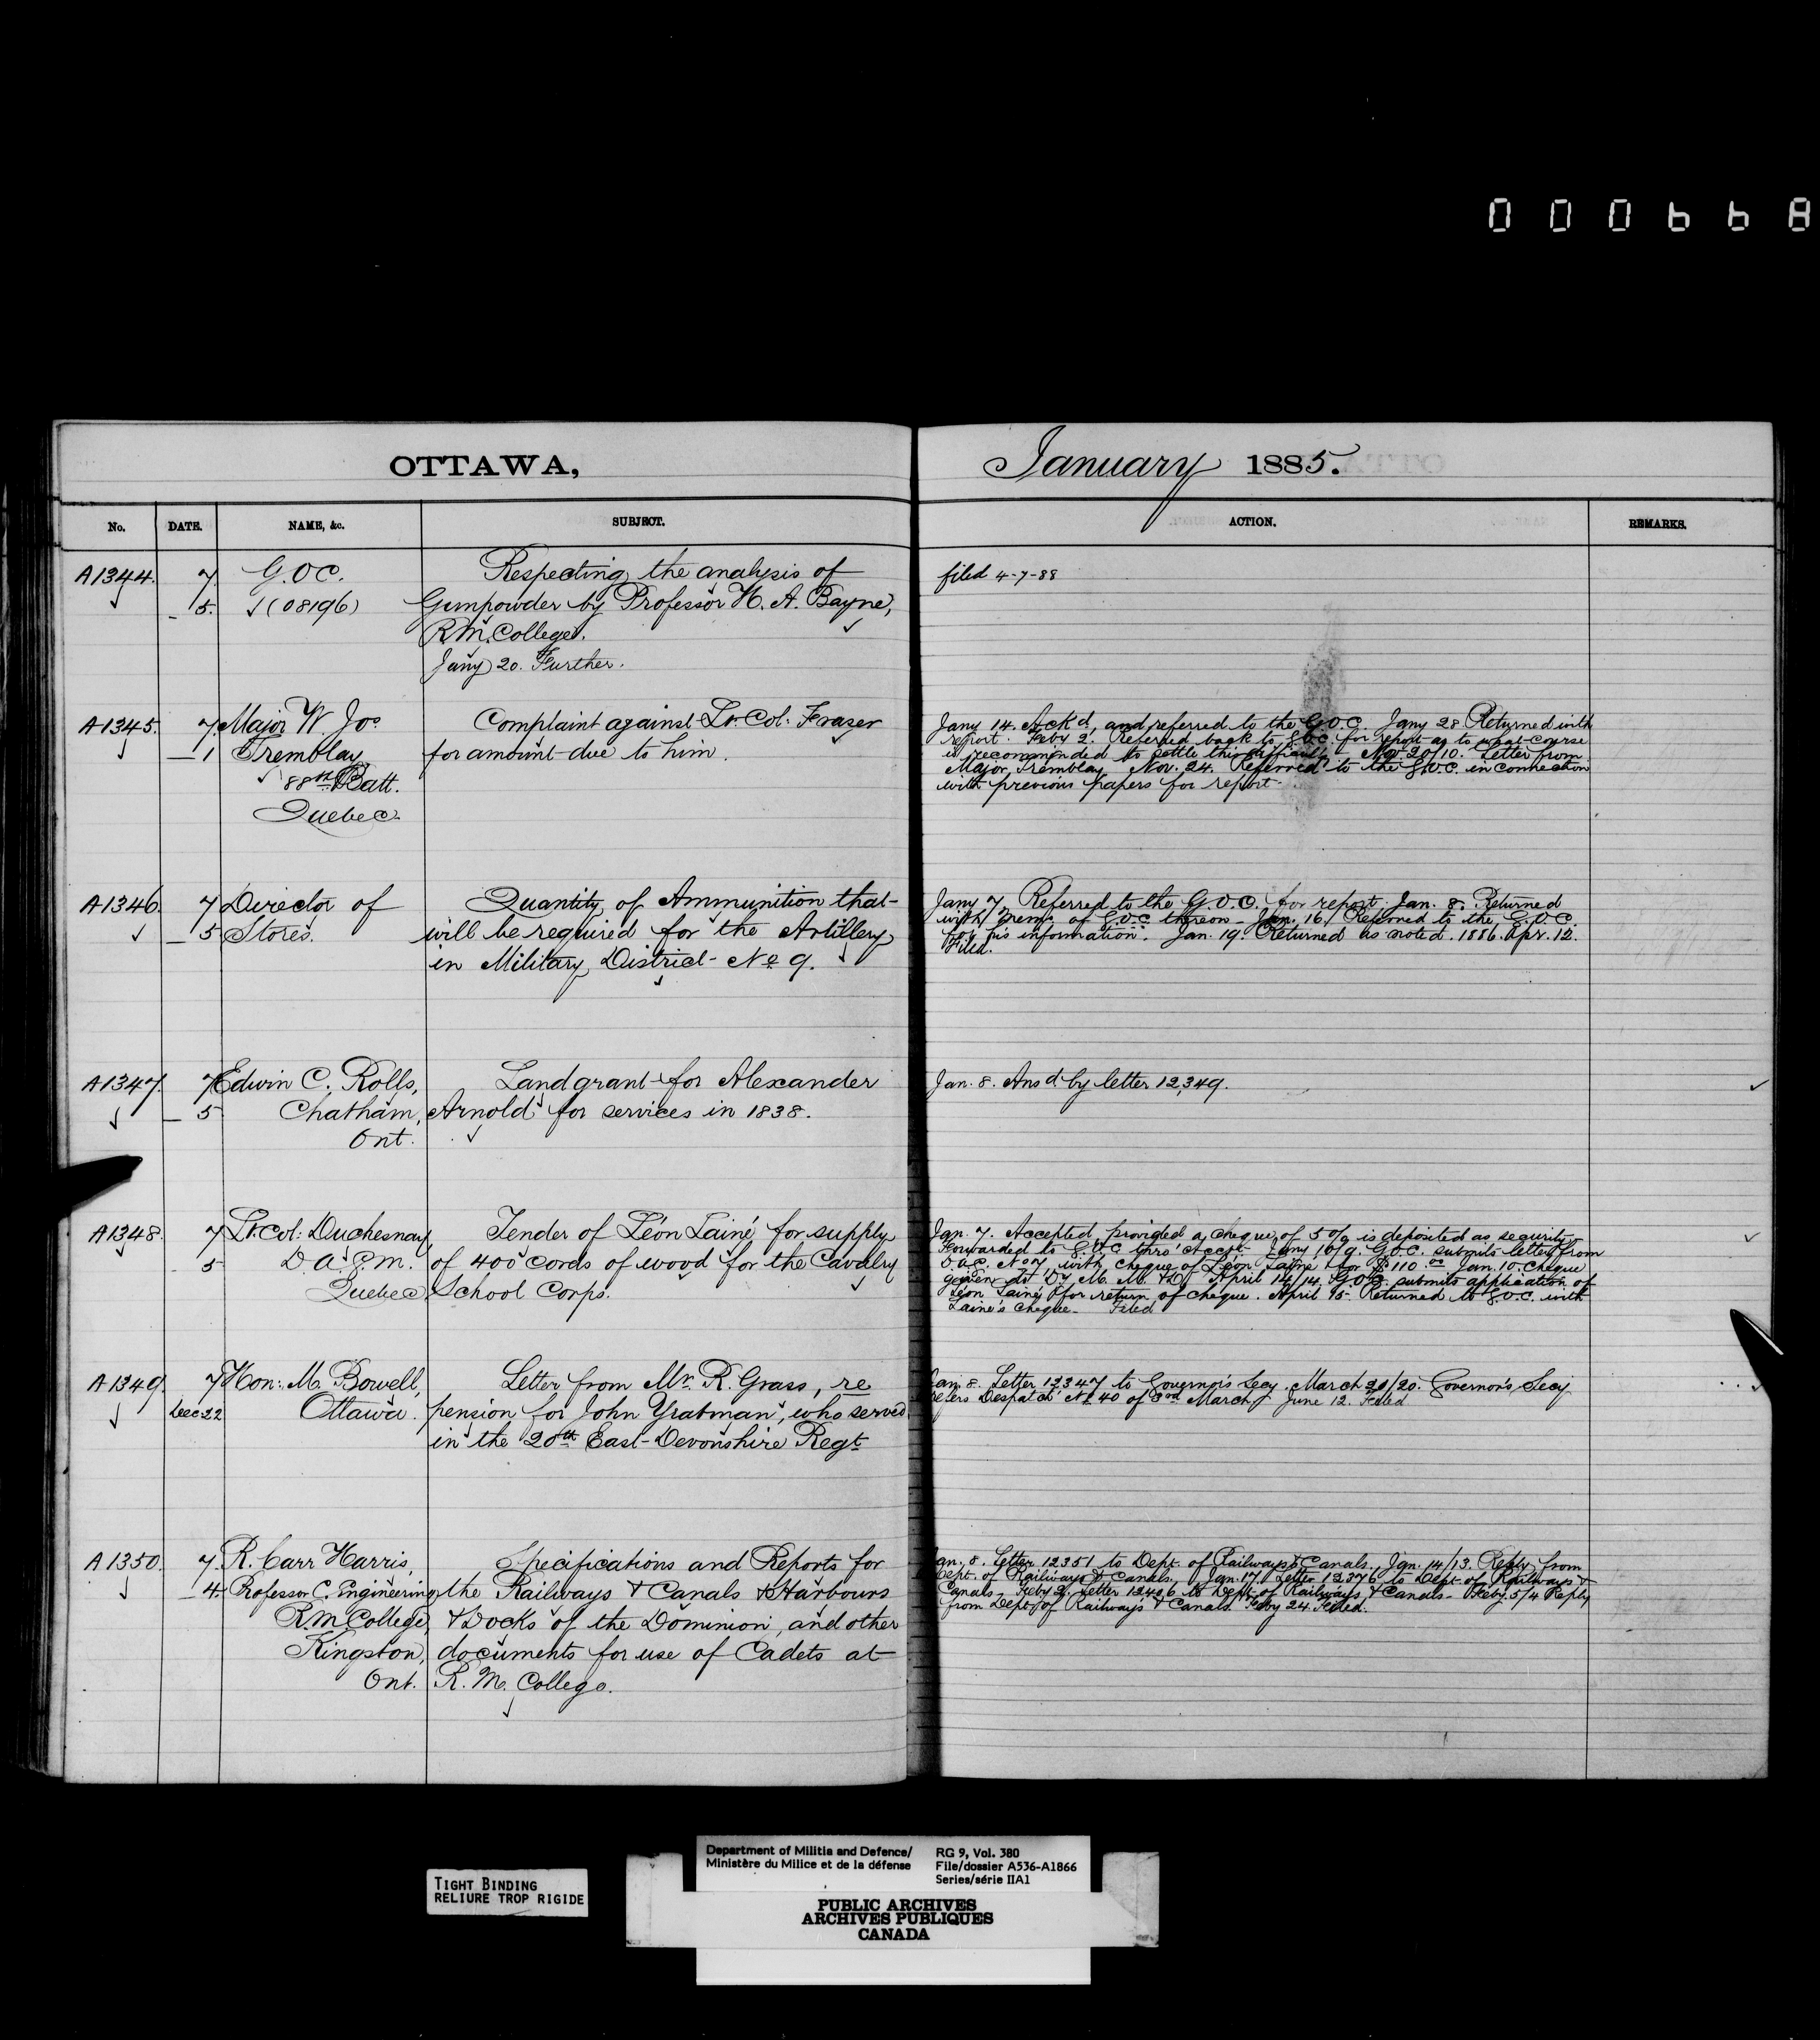 000668
OTTAWA,
January 1885.
No. DATE. NAME, &c. SUBJECT. ACTION. REMARKS.
A1344. 7 G.O.C. Respecting the analysis of
5. (08196) Gunpowder by Professor H. A. Bayne,
R.M. College.
Jany 20. Further.
filed 4-7-88
A1345. 7 Major W Jos Complaint against Lt. Col: Fraser
1 Tremblay for amount due to him.
88th Batt.
Quebec
Jany 14. Ack'd, and referred to the G.O.C. Jany 28 Returned with
report. Feby 2. Referred back to G.O.C. for report as to what course
is recommended to settle this Nov 20/10. Letter from
Major Tremblay Nov. 24. Referred to the G.O.C. in connection
with previous papers for report
A1346. 7 Director of Quantity of Ammunition that
5 Stores. will be required for the Artillery
in Military District No 9.
Jany 7 Referred to the G.O.C. for report. Jan. 8. Returned
with memo of G.O.C. thereon - Jan. 16. Returned to the G.O.C.
for his information. Jan. 19. Returned as noted. 1886. Apr. 12.
Filed.
A1347. 7 Edwin C. Rolls, Land grant for Alexander
5 Chatham, Arnold for services in 1838.
Ont.
Jan. 8. Ansd by letter 12,349.
A1348. 7 Lt. Col: Duchesnay Tender of Léon Lainé for supply
5 D.A.P.M. of 400 cords of wood for the Cavalry
Quebec School Corps.
Jan. 7. Accepted, provided a cheque of 5% is deposited as security
Forwarded to G.O.C. thro' Acct. Jany 10/9. G.O.C. submits letter from
with cheque of Léon Lainé for $110.00 Jan. 10. Cheque
given to Dy M. M. & D. April 14/14. G.O.C. submits application of
Léon Lainé for return of cheque. April 15. Returned to G.O.C. with
Lainé's cheque - Filed
A1349. 7 Hon: M. Bowell, Letter from Mr. R. Grass, re
Dec 22 Ottawa. pension for John Yratman, who served
in the 20th East-Devonshire Regt
Jan. 8. Letter 12347 to Governor's Secy. March 20/20. Governor's Secy
refers Despatch No 40 of 3rd March. June 12. Filed
A1350. 7. R. Carr Harris, Specifications and Reports for
4. Professor C. Engineering the Railways & Canals & Harbours
R.M. College, & Docks of the Dominion, and other
Kingston, documents for use of Cadets at
Ont. R. M. College.
Jan. 8. Letter 12351 to Dept. of Railways & Canals. Jan. 14/13. Reply from
Dept. of Railways & Canals. Jan. 17 Letter 12376 to Dept. of Railways &
Canals - Feby 2. Letter 12406 to Dept. of Railways & Canals - Feby. 5/4 Reply
from Dept. of Railways & Canals. Feby 24. Filed.
TIGHT BINDING
RELIURE TROP RIGIDE
Department of Militia and Defence/
Ministère du Milice et de la défense
RG 9, Vol. 380
File/dossier A536-A1866
Series/série IIA1
PUBLIC ARCHIVES
ARCHIVES PUBLIQUES
CANADA